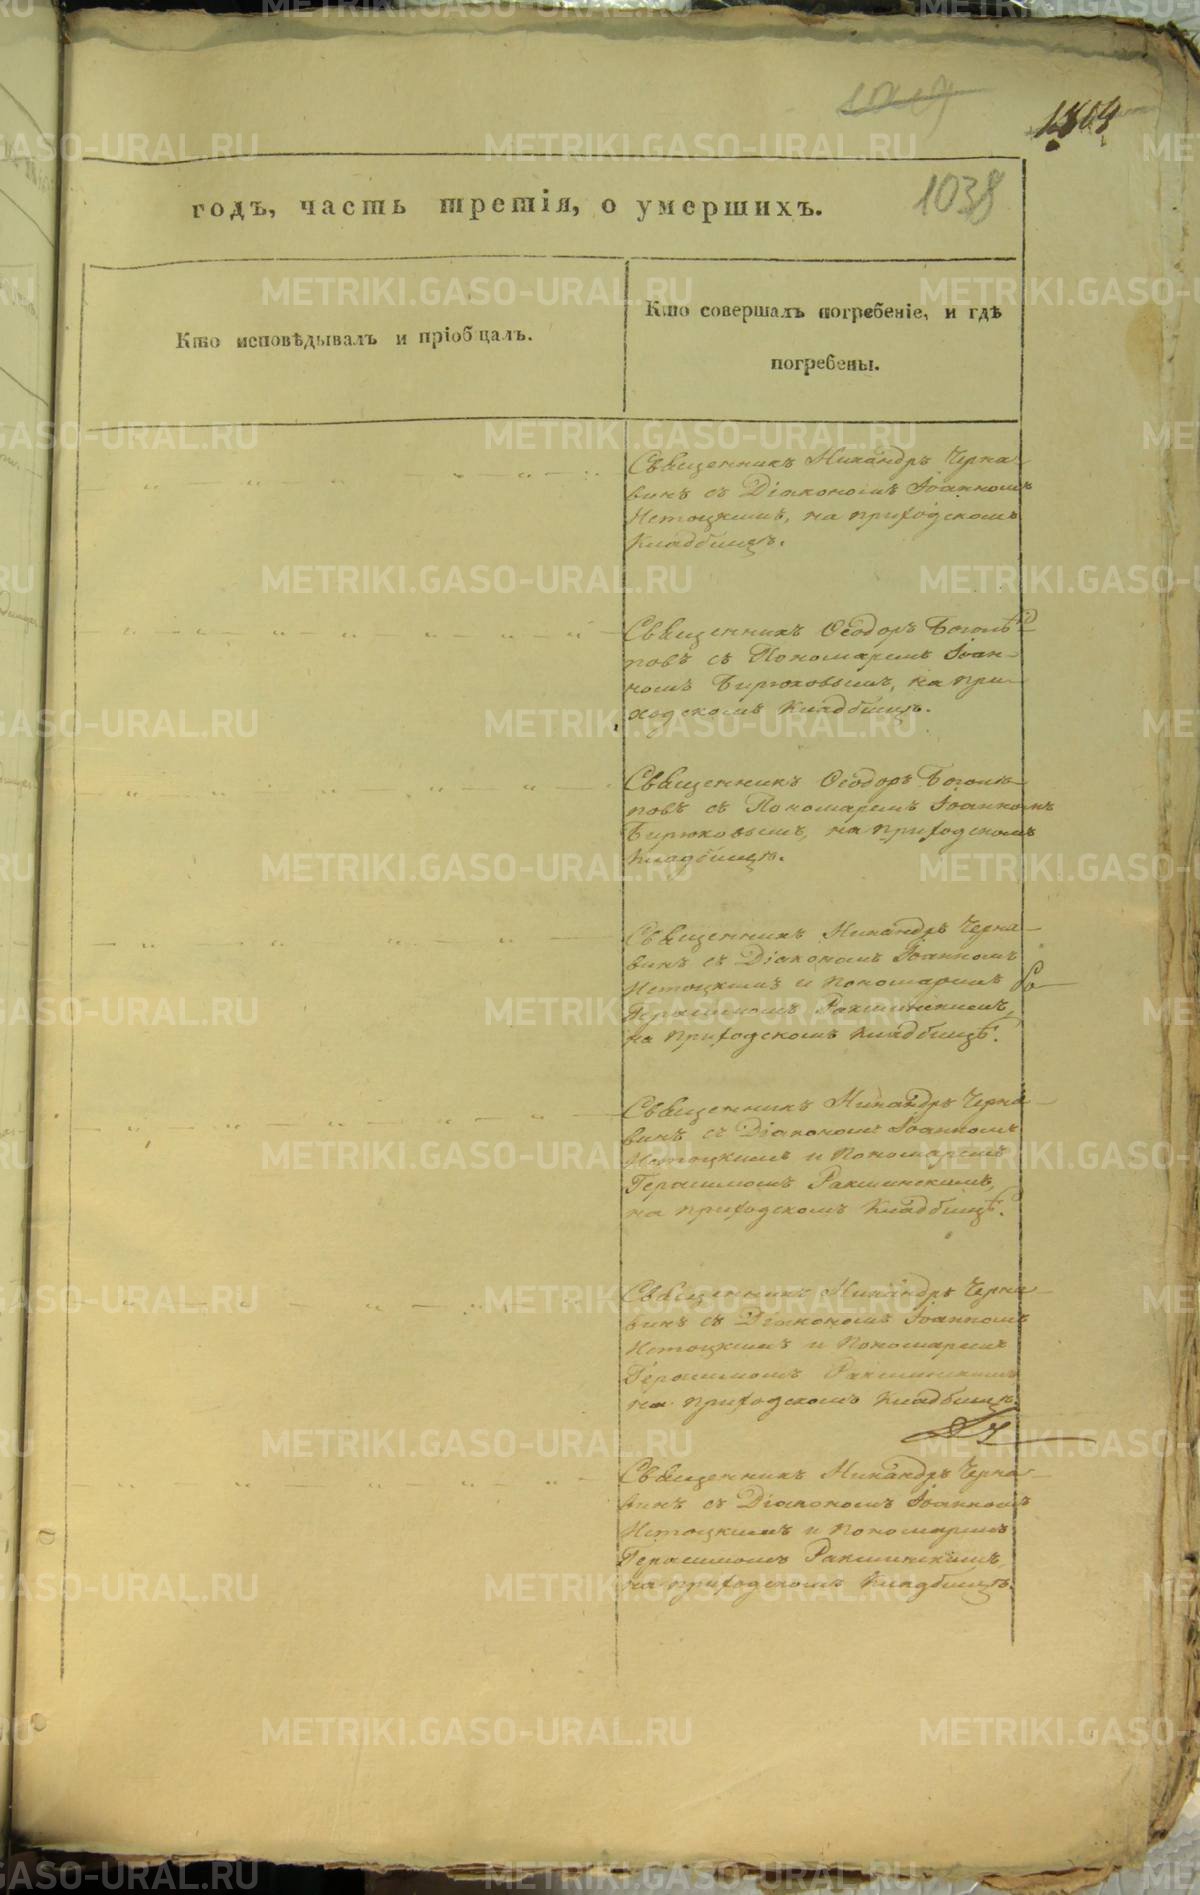 1038
годъ, часть третія, о умершихъ.
Кто исповѣдывалъ и пріобщалъ.
Кто совершалъ погребеніе, и гдѣ
погребены.
Священникъ Никандръ Черна-
винъ съ Діакономъ Іоанномъ
Истоцкимъ, на приходскомъ
Кладбищѣ.
Священникъ Ѳеодоръ Боголѣ-
повъ съ Пономаремъ Іоан-
номъ Бирюковымъ, на при-
ходскомъ Кладбищѣ.
Священникъ Ѳеодоръ Боголѣ-
повъ съ Пономаремъ Іоанномъ
Бирюковымъ, на приходскомъ
Кладбищѣ.
Священникъ Никандръ Черна-
винъ съ Діакономъ Іоанномъ
Истоцкимъ и Пономаремъ
Герасимомъ Ракшинскимъ,
на приходскомъ Кладбищѣ.
Священникъ Никандръ Черна-
винъ съ Діакономъ Іоанномъ
Истоцкимъ и Пономаремъ
Герасимомъ Ракшинскимъ,
на приходскомъ Кладбищѣ.
Священникъ Никандръ Черна-
винъ съ Діакономъ Іоанномъ
Истоцкимъ и Пономаремъ
Герасимомъ Ракшинскимъ
на приходскомъ Кладбищѣ.
Священникъ Никандръ Черна-
винъ съ Діакономъ Іоанномъ
Истоцкимъ и Пономаремъ
Герасимомъ Ракшинскимъ,
на приходскомъ Кладбищѣ.
METRIKI.GASO-URAL.RU